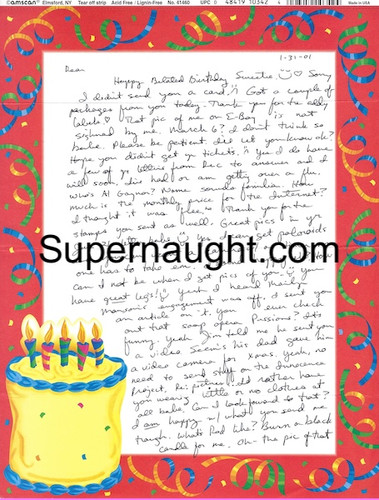 amscan Elmsford, NY Tear off strip Acid Free / Lignin-Free No. 41460 UPC 0 48419 10342 Made in USA
1-31-01
Dear
Happy Belated Birthday Sweetie. Sorry
I didn't send you a card. Got a couple of
packages from you today. Thank you for the
That pic of me on E-Bay is not
signed by me. March 6? I don't think so
babe. Please be patient. Did let you know ok?
Hope you didn't get yr tickets. Yes I do have
a few of yr letters from Dec to answer and I
will soon. I've had or am getting over a flu.
Who's Al Gaynor? Name sounds familiar. How
much is the monthly price for the Internet?
I thought it was free. Thank you for the
stamps you sent as well. Great pics in yr
polaroids
Supernaught.com
one has to take em.
not be when I get pics of you. You
have great legs! Yeah I heard
Manson's engagement was off. I send you
an article on it. you ever check
out that soap opera Passions? Its
funny. Yeah I'm told me he sent you
a video. Seems his dad gave him
a video camera for Xmas. Yeah, no
need to send stuff on the Innocence
Project. pictures I'd rather have
you wearing little or no clothes at
all babe. Can I look forward to that?
I am happy w/ what you send me
though. What's Rod like? Burn a black
candle for me. Oh- the pic of that